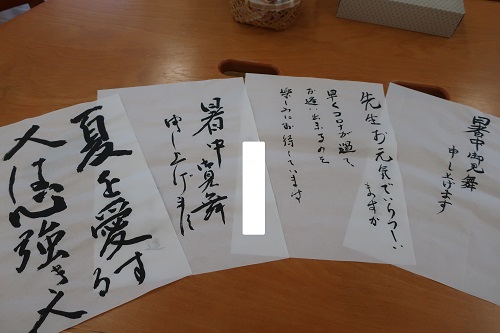 暑中御見舞
申し上げます
先生お元気でいらっしゃい
ますか
早くコロナが過て、
お逢い出来るのを
楽しみにお待ちしています
暑中見舞
申し上げます
夏を愛する
人は心強き人